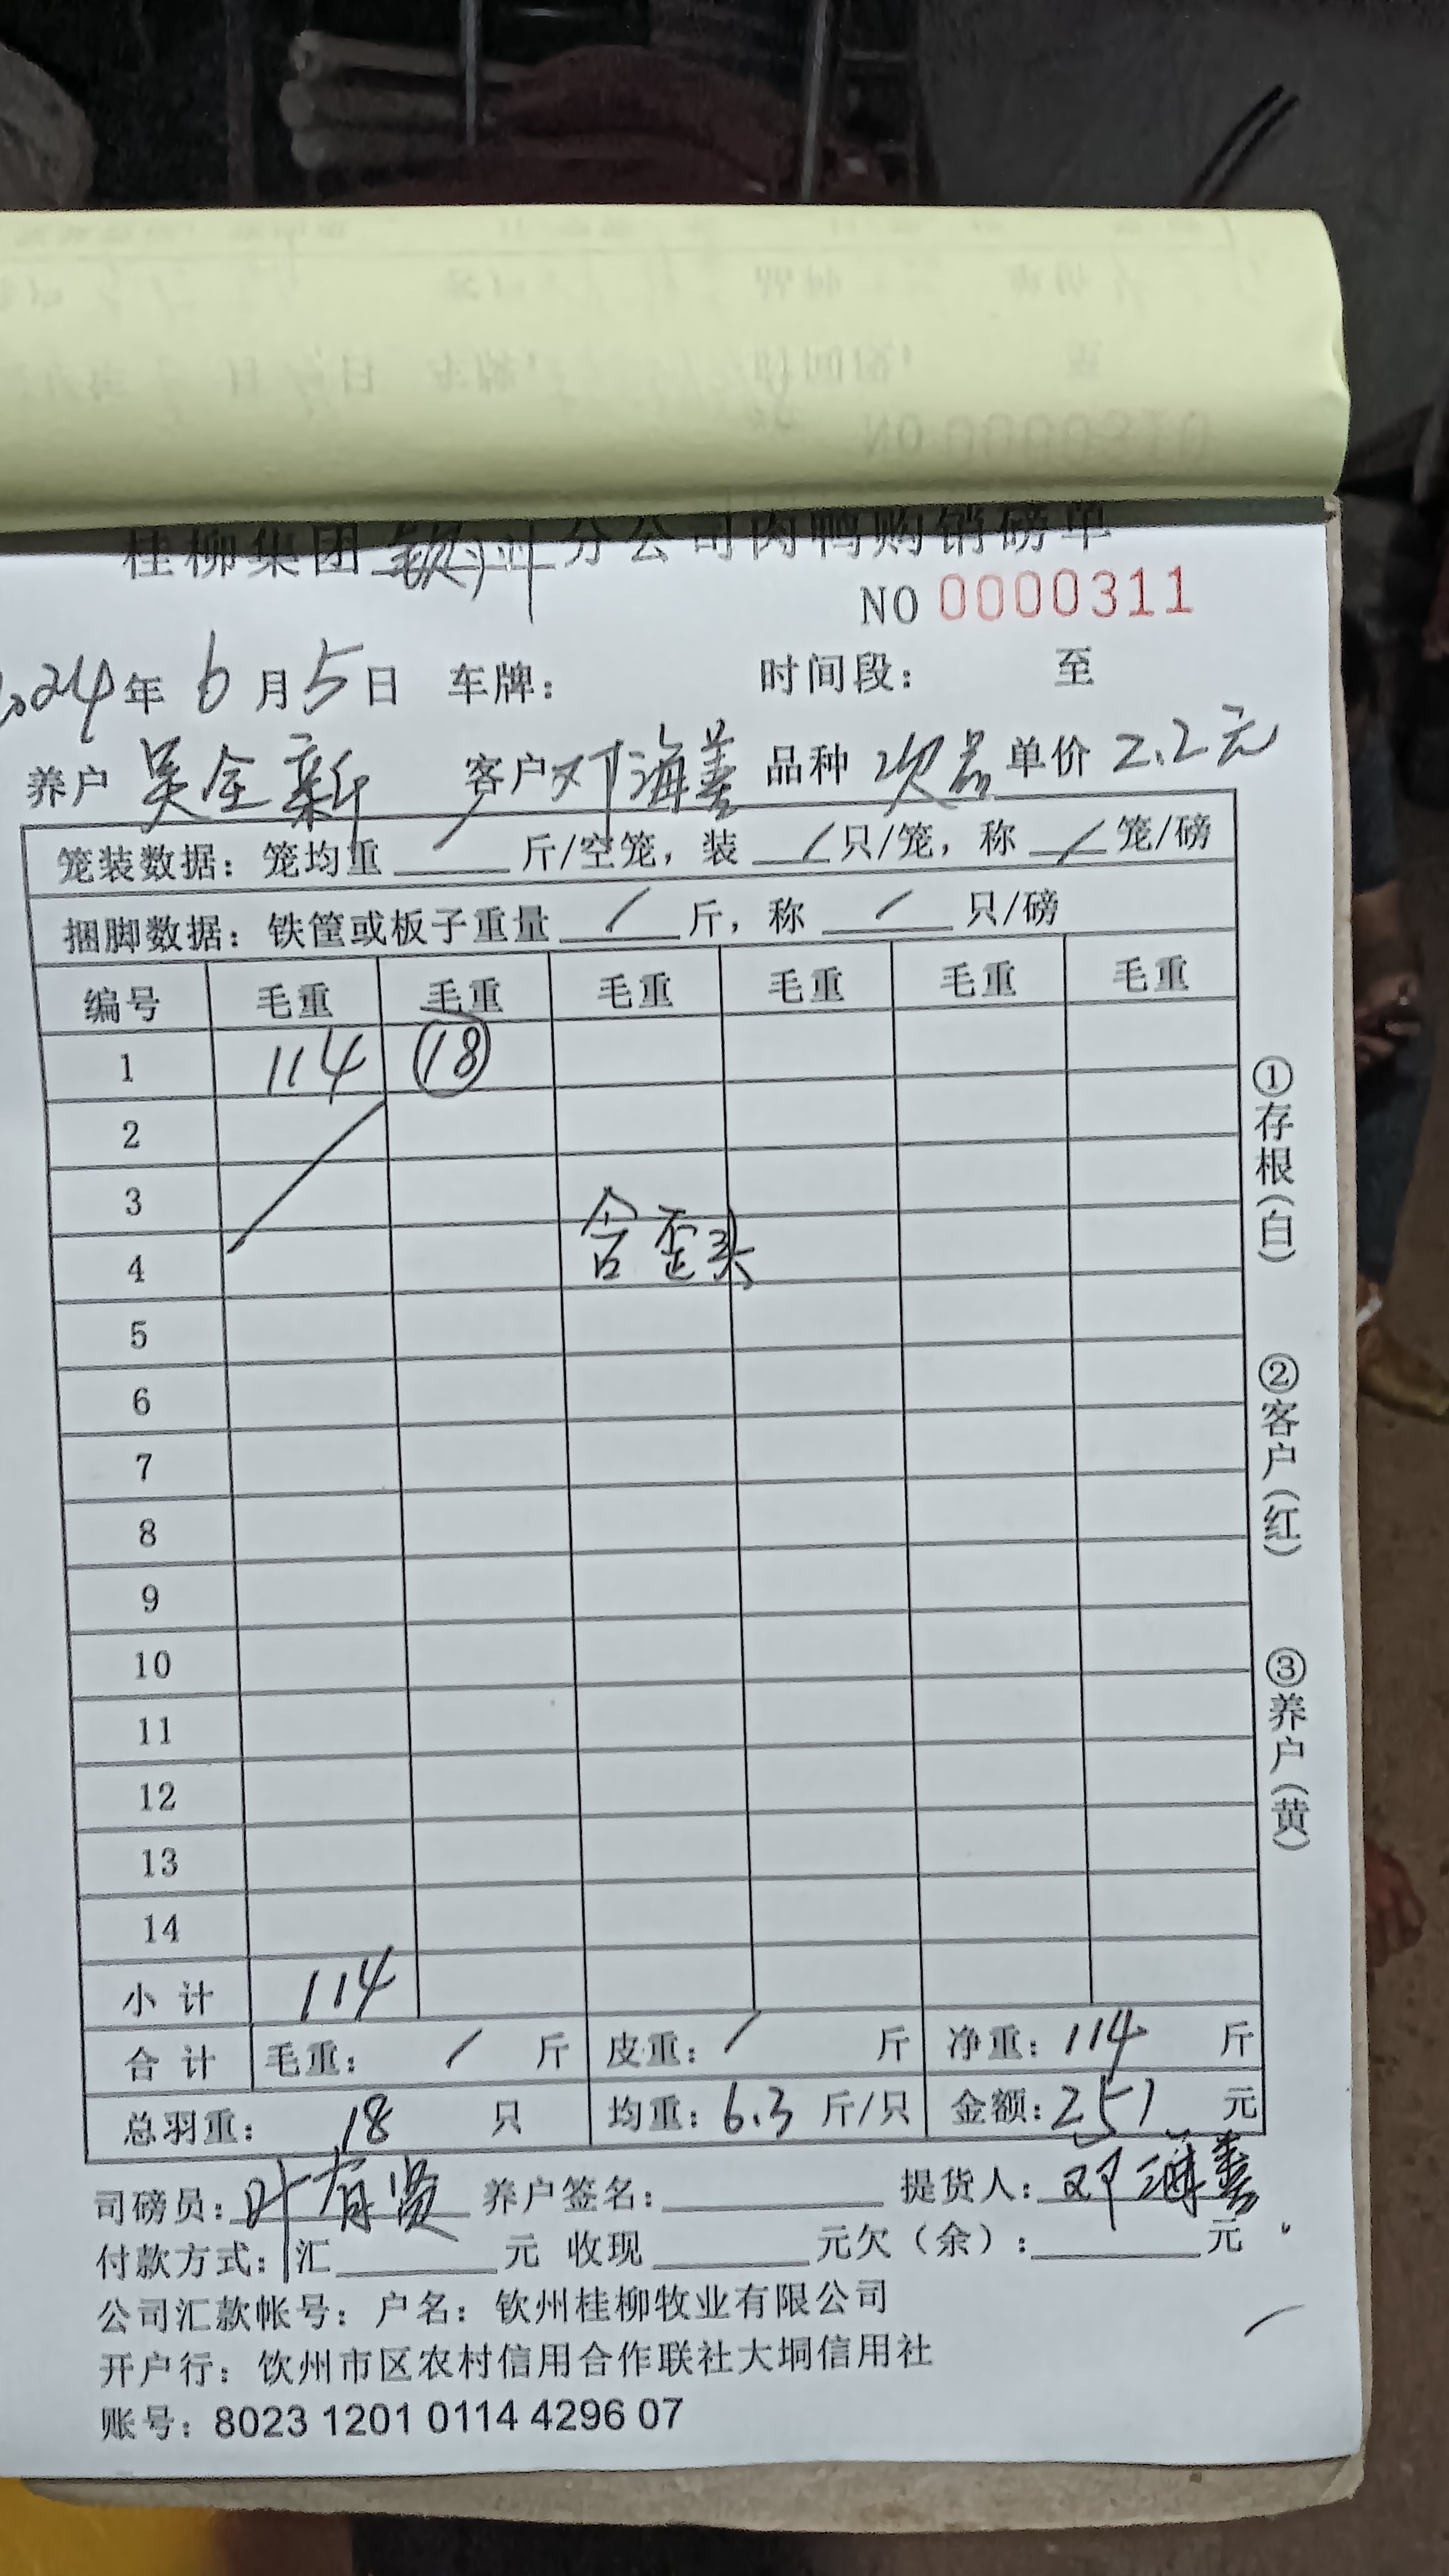 桂柳集团钦州分公司肉鸭购销磅单
NO 0000311
2024年6月5日 车牌: 时间段: 至
养户 吴全新 客户 邓海善 品种 次品 单价 2.2元
笼装数据: 笼均重 / 斤/空笼, 装 / 只/笼, 称 / 笼/磅
捆脚数据: 铁筐或板子重量 / 斤, 称 / 只/磅
编号 毛重 毛重 毛重 毛重 毛重 毛重
1 114 18
2
3
4 含歪头
5
6
7
8
9
10
11
12
13
14
小计 114
合计 毛重: / 斤 皮重: / 斤 净重: 114 斤
总羽重: 18 只 均重: 6.3 斤/只 金额: 251 元
司磅员: 叶有贤 养户签名: 提货人: 邓海善
付款方式: 汇 元 收现 元欠(余): 元
公司汇款帐号: 户名: 钦州桂柳牧业有限公司
开户行: 钦州市区农村信用合作联社大垌信用社
账号: 8023 1201 0114 4296 07
①存根(白)
②客户(红)
③养户(黄)